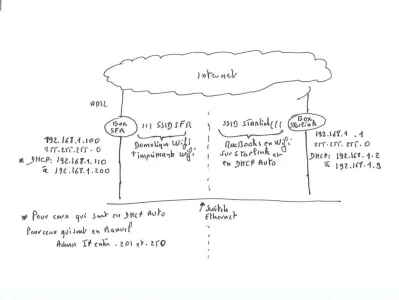 Internet
ADSL
Box
SFR
SSID SFR
Domotique Wifi
+ imprimante Wifi
192.168.1.100
255.255.255.0
* DHCP: 192.168.1.110
à 192.168.1.200
SSID Starlink
MacBooks en Wifi
sur Starlink et
en DHCP Auto
Box
Starlink
192.168.1.1
255.255.255.0
DHCP: 192.168.1.2
à 192.168.1.9
* Pour ceux qui sont en DHCP Auto
Pour ceux qui sont en Manuel
Adress IP entre .201 et .250
Switch
Ethernet